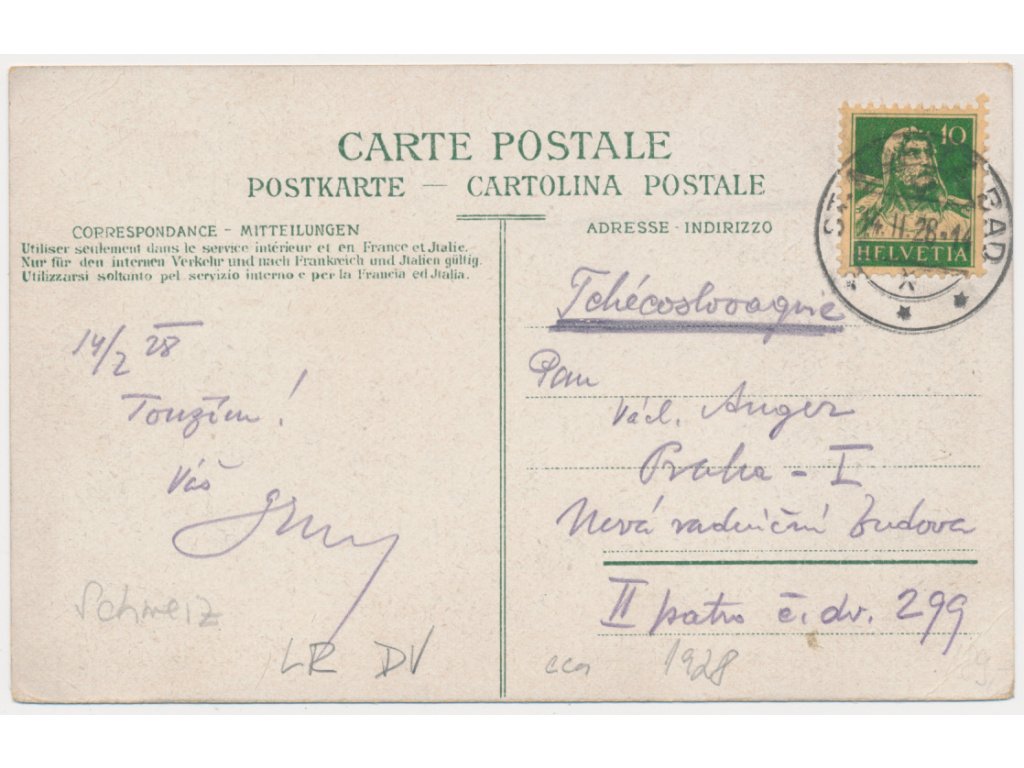 CARTE POSTALE
POSTKARTE — CARTOLINA POSTALE
CORRESPONDANCE - MITTEILUNGEN
Utiliser seulement dans le service intérieur et en France et Jtalie.
Nur für den internen Verkehr und nach Frankreich und Jtalien gültig.
Utilizzarsi soltanto pel servizio interno e per la Francia ed Jtalia.
ADRESSE - INDIRIZZO
10
HELVETIA
BAD
14/2 28
Toužím!
Váš
Schweiz
LR DV
Tchécoslovaquie
Pan
Václ. Anger
Praha - I
Nová radniční budova
II patro č. dv. 299
1928